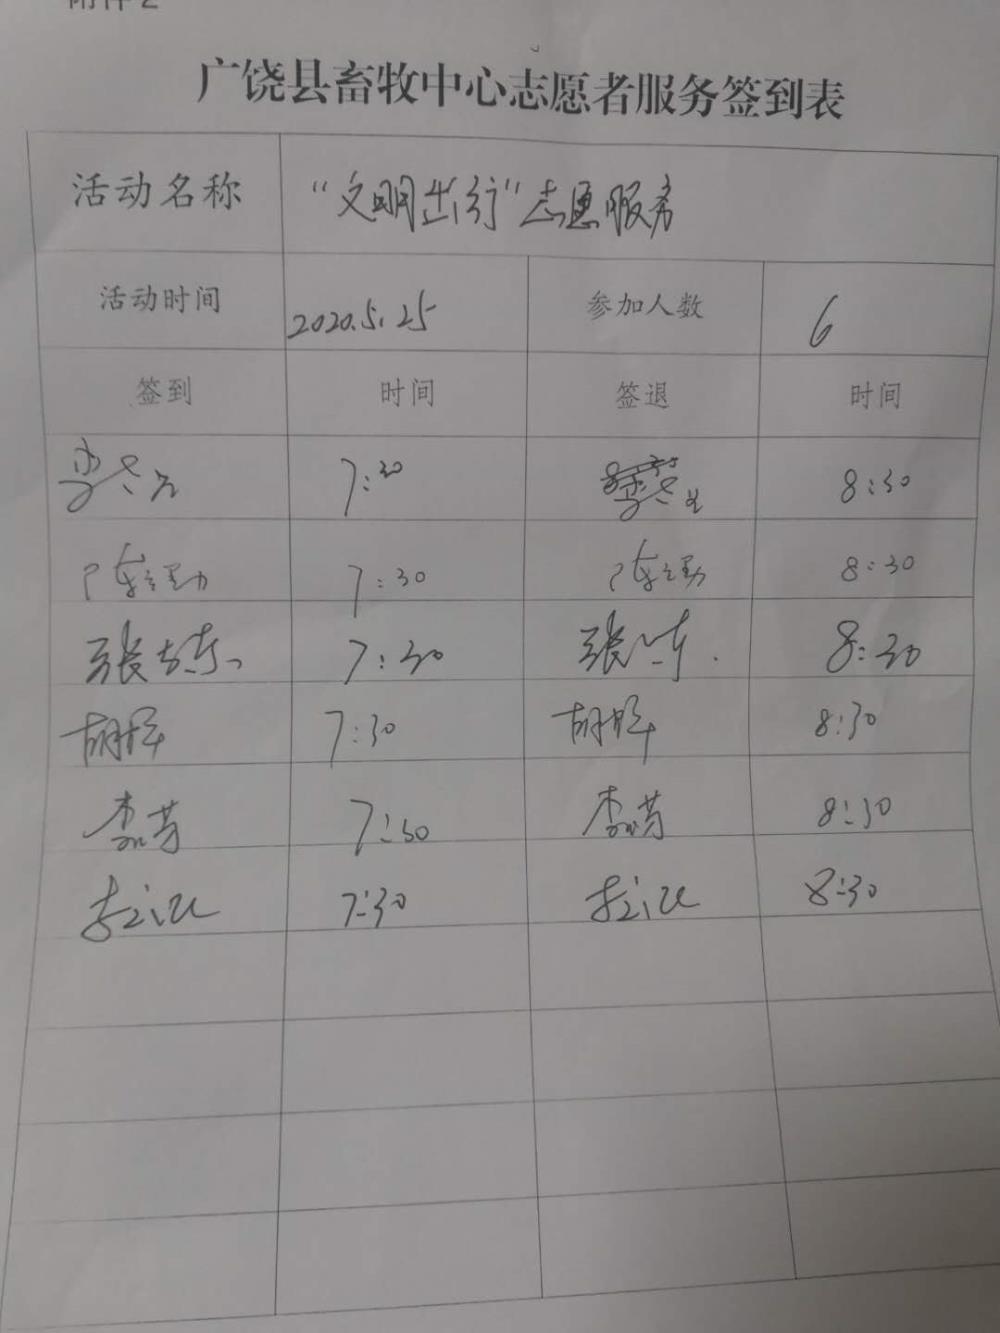 附件2
广饶县畜牧中心志愿者服务签到表
活动名称 “文明出行”志愿服务
活动时间 2020.5.25 参加人数 6
签到 时间 签退 时间
7:30 8:30
7:30 8:30
7:30 8:30
胡晖 7:30 胡晖 8:30
李芳 7:30 李芳 8:30
7:30 8:30